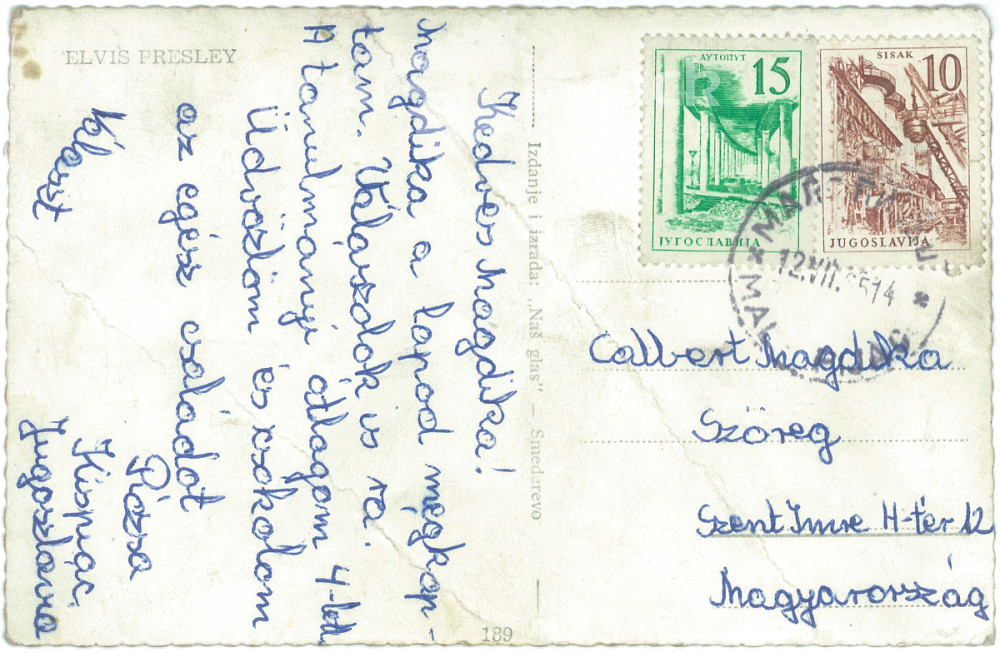 ELVIS PRESLEY
Kedves Magdika!
Magdika a lapod megkap-
tam. Válaszolok is rá.
A tanulmányi átlagom 4-lett
Üdvözlöm és csókolom
az egész családot
Rózsa
Kispiac.
Jugoszlavia
Izdanje i izrada: „Naš glas" — Smederevo
189
АУТОПУТ
R 15
ЈУГОСЛАВИЈА
SISAK
10
JUGOSLAVIJA
12.VII.
14
Calbert Magdika
Szöreg
Szent Imre H-tér 12
Magyarország